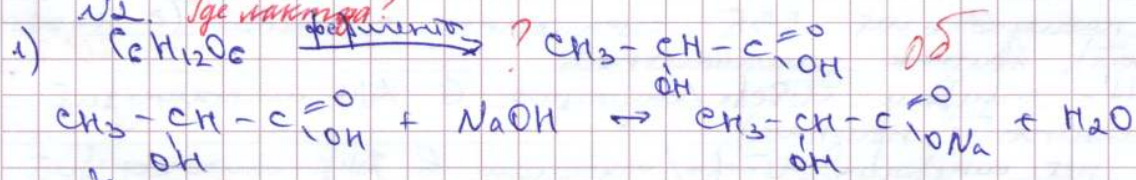 №2. Где лактоза?
1) C6H12O6 ферменты → ? CH3 – CH – C =O OH 0б
OH
CH3 – CH – C =O OH + NaOH → CH3 – CH – C =O ONa + H2O
OH OH